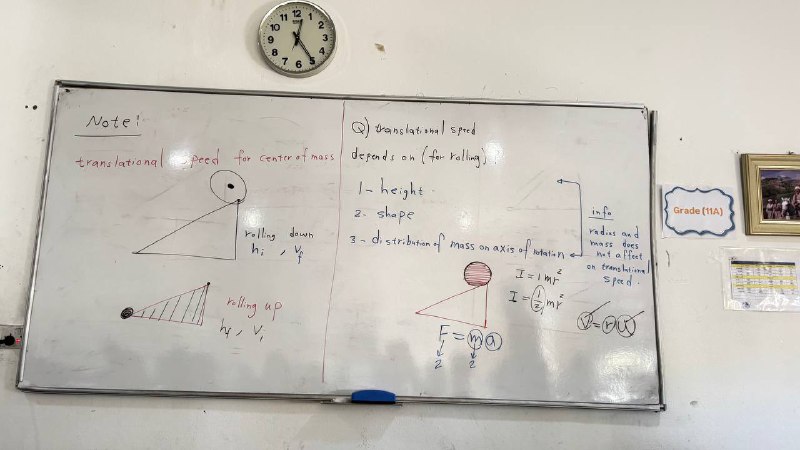 12
1
2
3
4
5
6
7
8
9
10
11
Note!
translational speed for center of mass
rolling down
hi , Vf
rolling up
hf , Vi
Q) translational speed
depends on (for rolling)
1- height.
2- shape
3- distribution of mass on axis of rotation
I = 1mr²
I = 1/2 mr²
F = m a
2 2
V = r ω
info
radius and
mass does
not affect
on translational
speed.
Grade (11A)